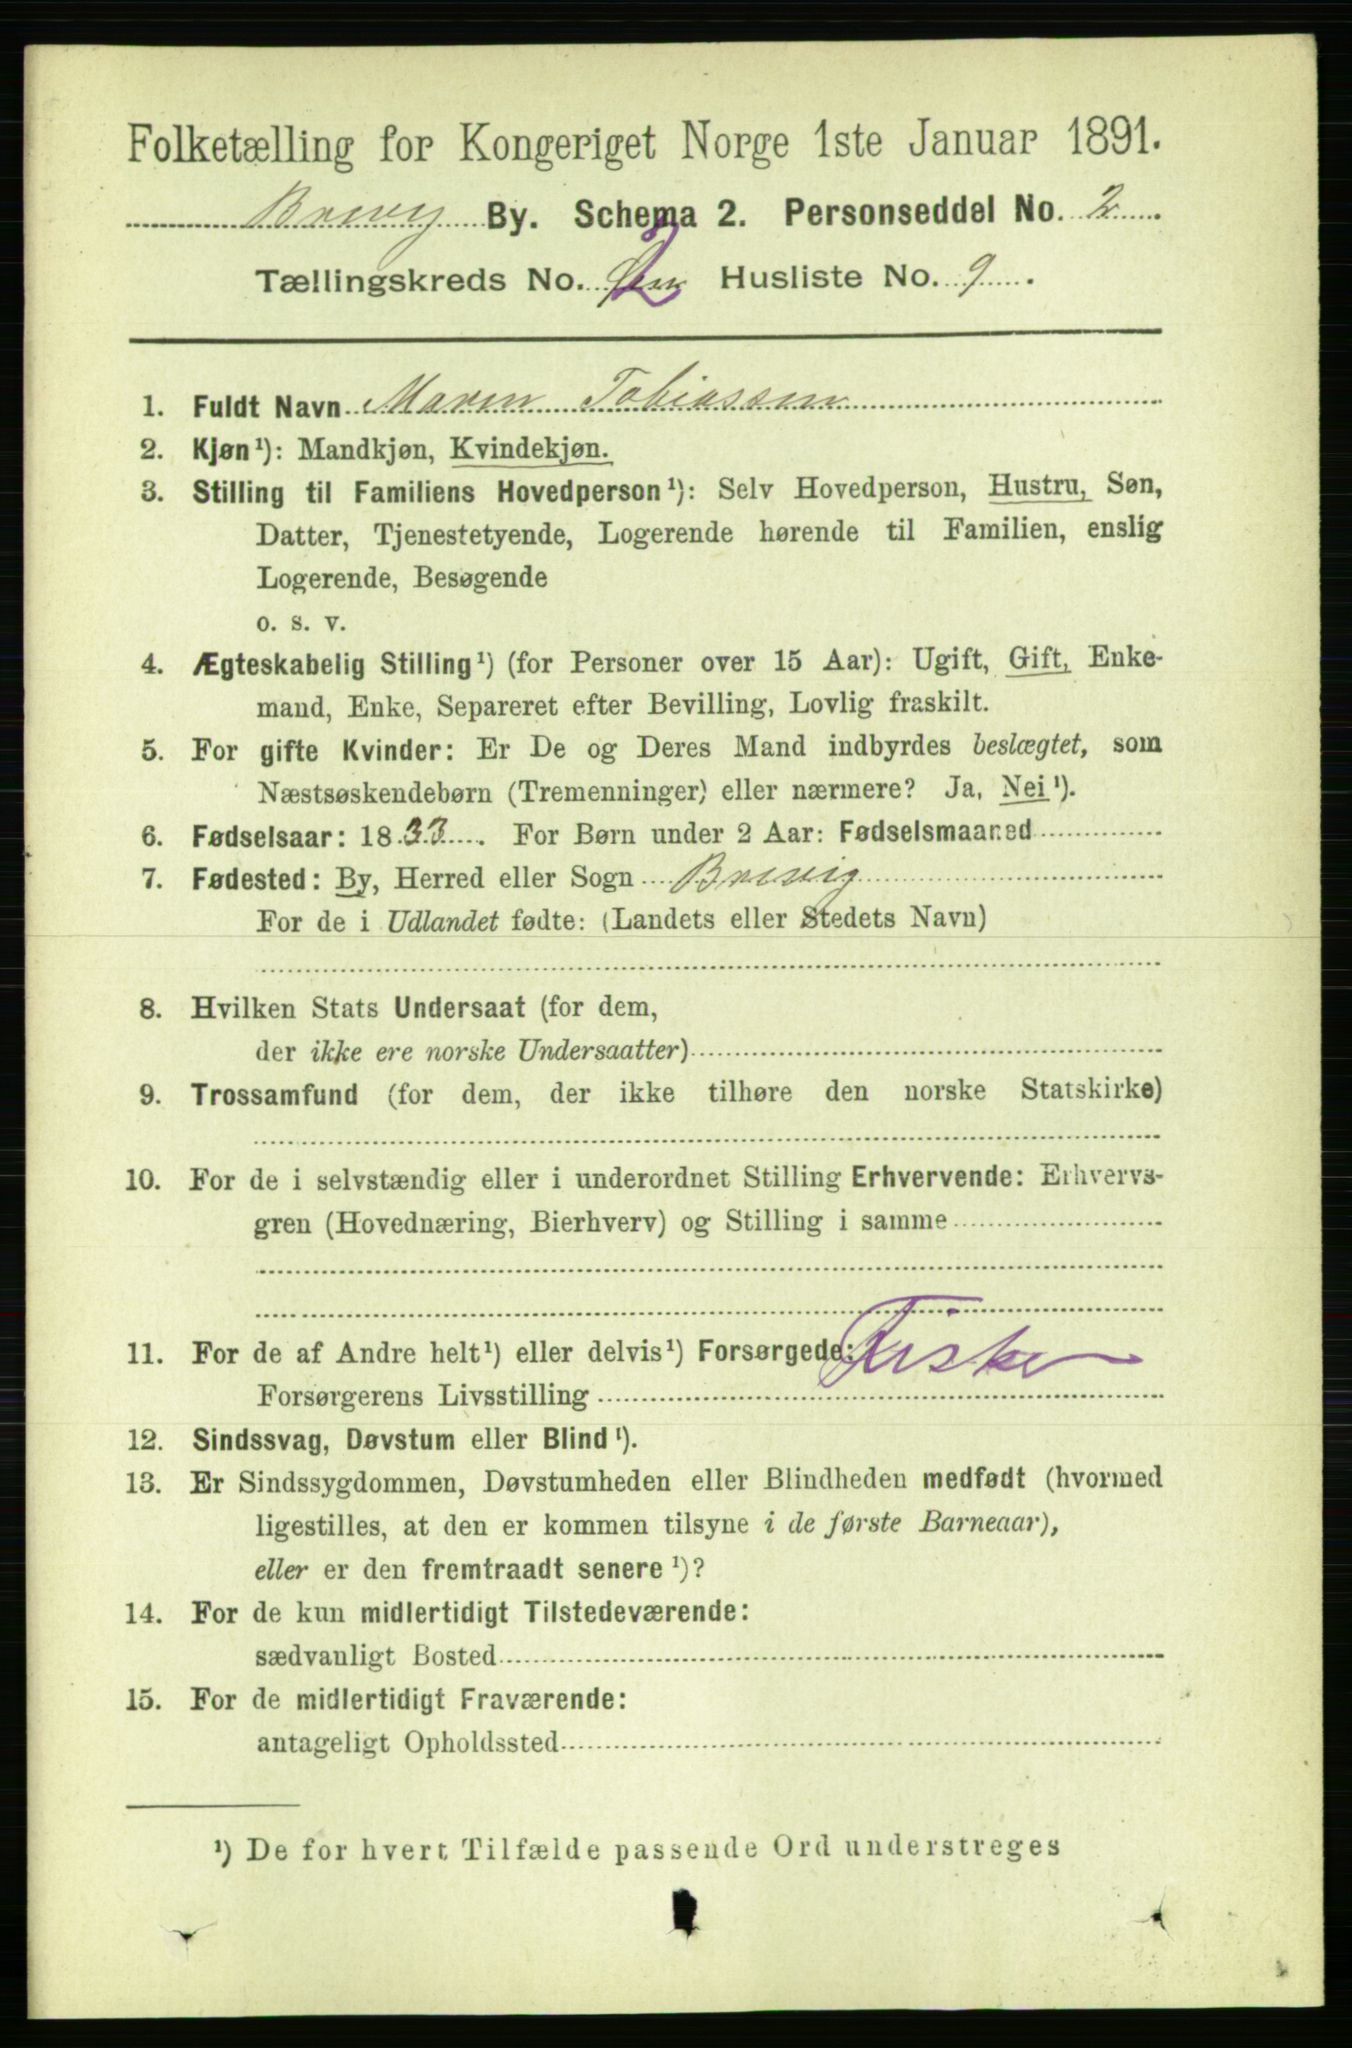 Folketælling for Kongeriget Norge 1ste Januar 1891.
Brevig By. Schema 2. Personseddel No. 2.
Tællingskreds No. 2 Husliste No. 9.
1. Fuldt Navn Maren Tobiassen
2. Kjøn¹): Mandkjøn, Kvindekjøn.
3. Stilling til Familiens Hovedperson¹): Selv Hovedperson, Hustru, Søn,
Datter, Tjenestetyende, Logerende hørende til Familien, enslig
Logerende, Besøgende
o. s. v.
4. Ægteskabelig Stilling¹) (for Personer over 15 Aar): Ugift, Gift, Enke-
mand, Enke, Separeret efter Bevilling, Lovlig fraskilt.
5. For gifte Kvinder: Er De og Deres Mand indbyrdes beslægtet, som
Næstsøskendebørn (Tremenninger) eller nærmere? Ja, Nei¹).
6. Fødselsaar: 1833. For Børn under 2 Aar: Fødselsmaaned
7. Fødested: By, Herred eller Sogn Brevig
For de i Udlandet fødte: (Landets eller Stedets Navn)
8. Hvilken Stats Undersaat (for dem,
der ikke ere norske Undersaatter)
9. Trossamfund (for dem, der ikke tilhøre den norske Statskirke)
10. For de i selvstændig eller i underordnet Stilling Erhvervende: Erhvervs-
gren (Hovednæring, Bierhverv) og Stilling i samme
11. For de af Andre helt¹) eller delvis¹) Forsørgede: Fisker
Forsørgerens Livsstilling
12. Sindssvag, Døvstum eller Blind¹).
13. Er Sindssygdommen, Døvstumheden eller Blindheden medfødt (hvormed
ligestilles, at den er kommen tilsyne i de første Barneaar),
eller er den fremtraadt senere¹)?
14. For de kun midlertidigt Tilstedeværende:
sædvanligt Bosted
15. For de midlertidigt Fraværende:
antageligt Opholdssted
¹) De for hvert Tilfælde passende Ord understreges